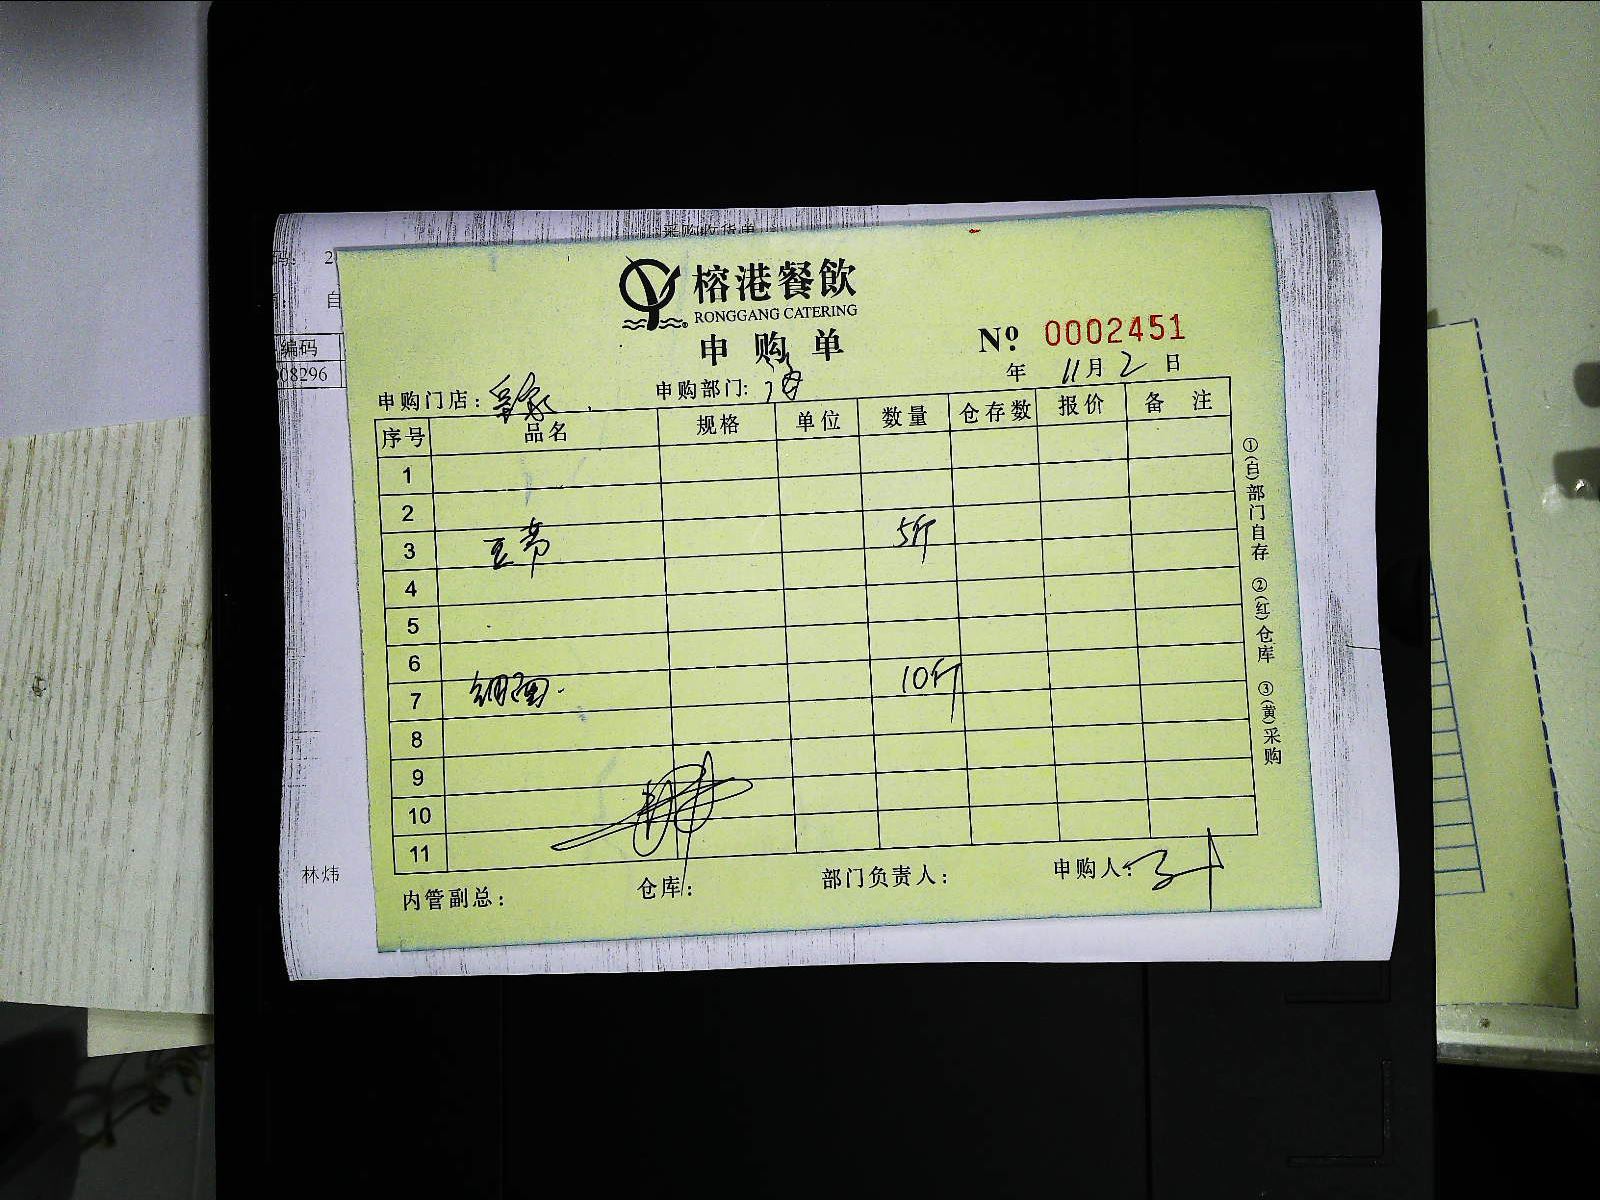 采购收货单
编码
08296
榕港餐飲
RONGGANG CATERING
申购单
№ 0002451
年 11月2日
申购门店：
申购部门：
序号 品名 规格 单位 数量 仓存数 报价 备注
1
2
3 豆苗 5斤
4
5
6
7 细面 10斤
8
9
10
11
内管副总： 仓库： 部门负责人： 申购人：
①(白)部门自存 ②(红)仓库 ③(黄)采购
林炜